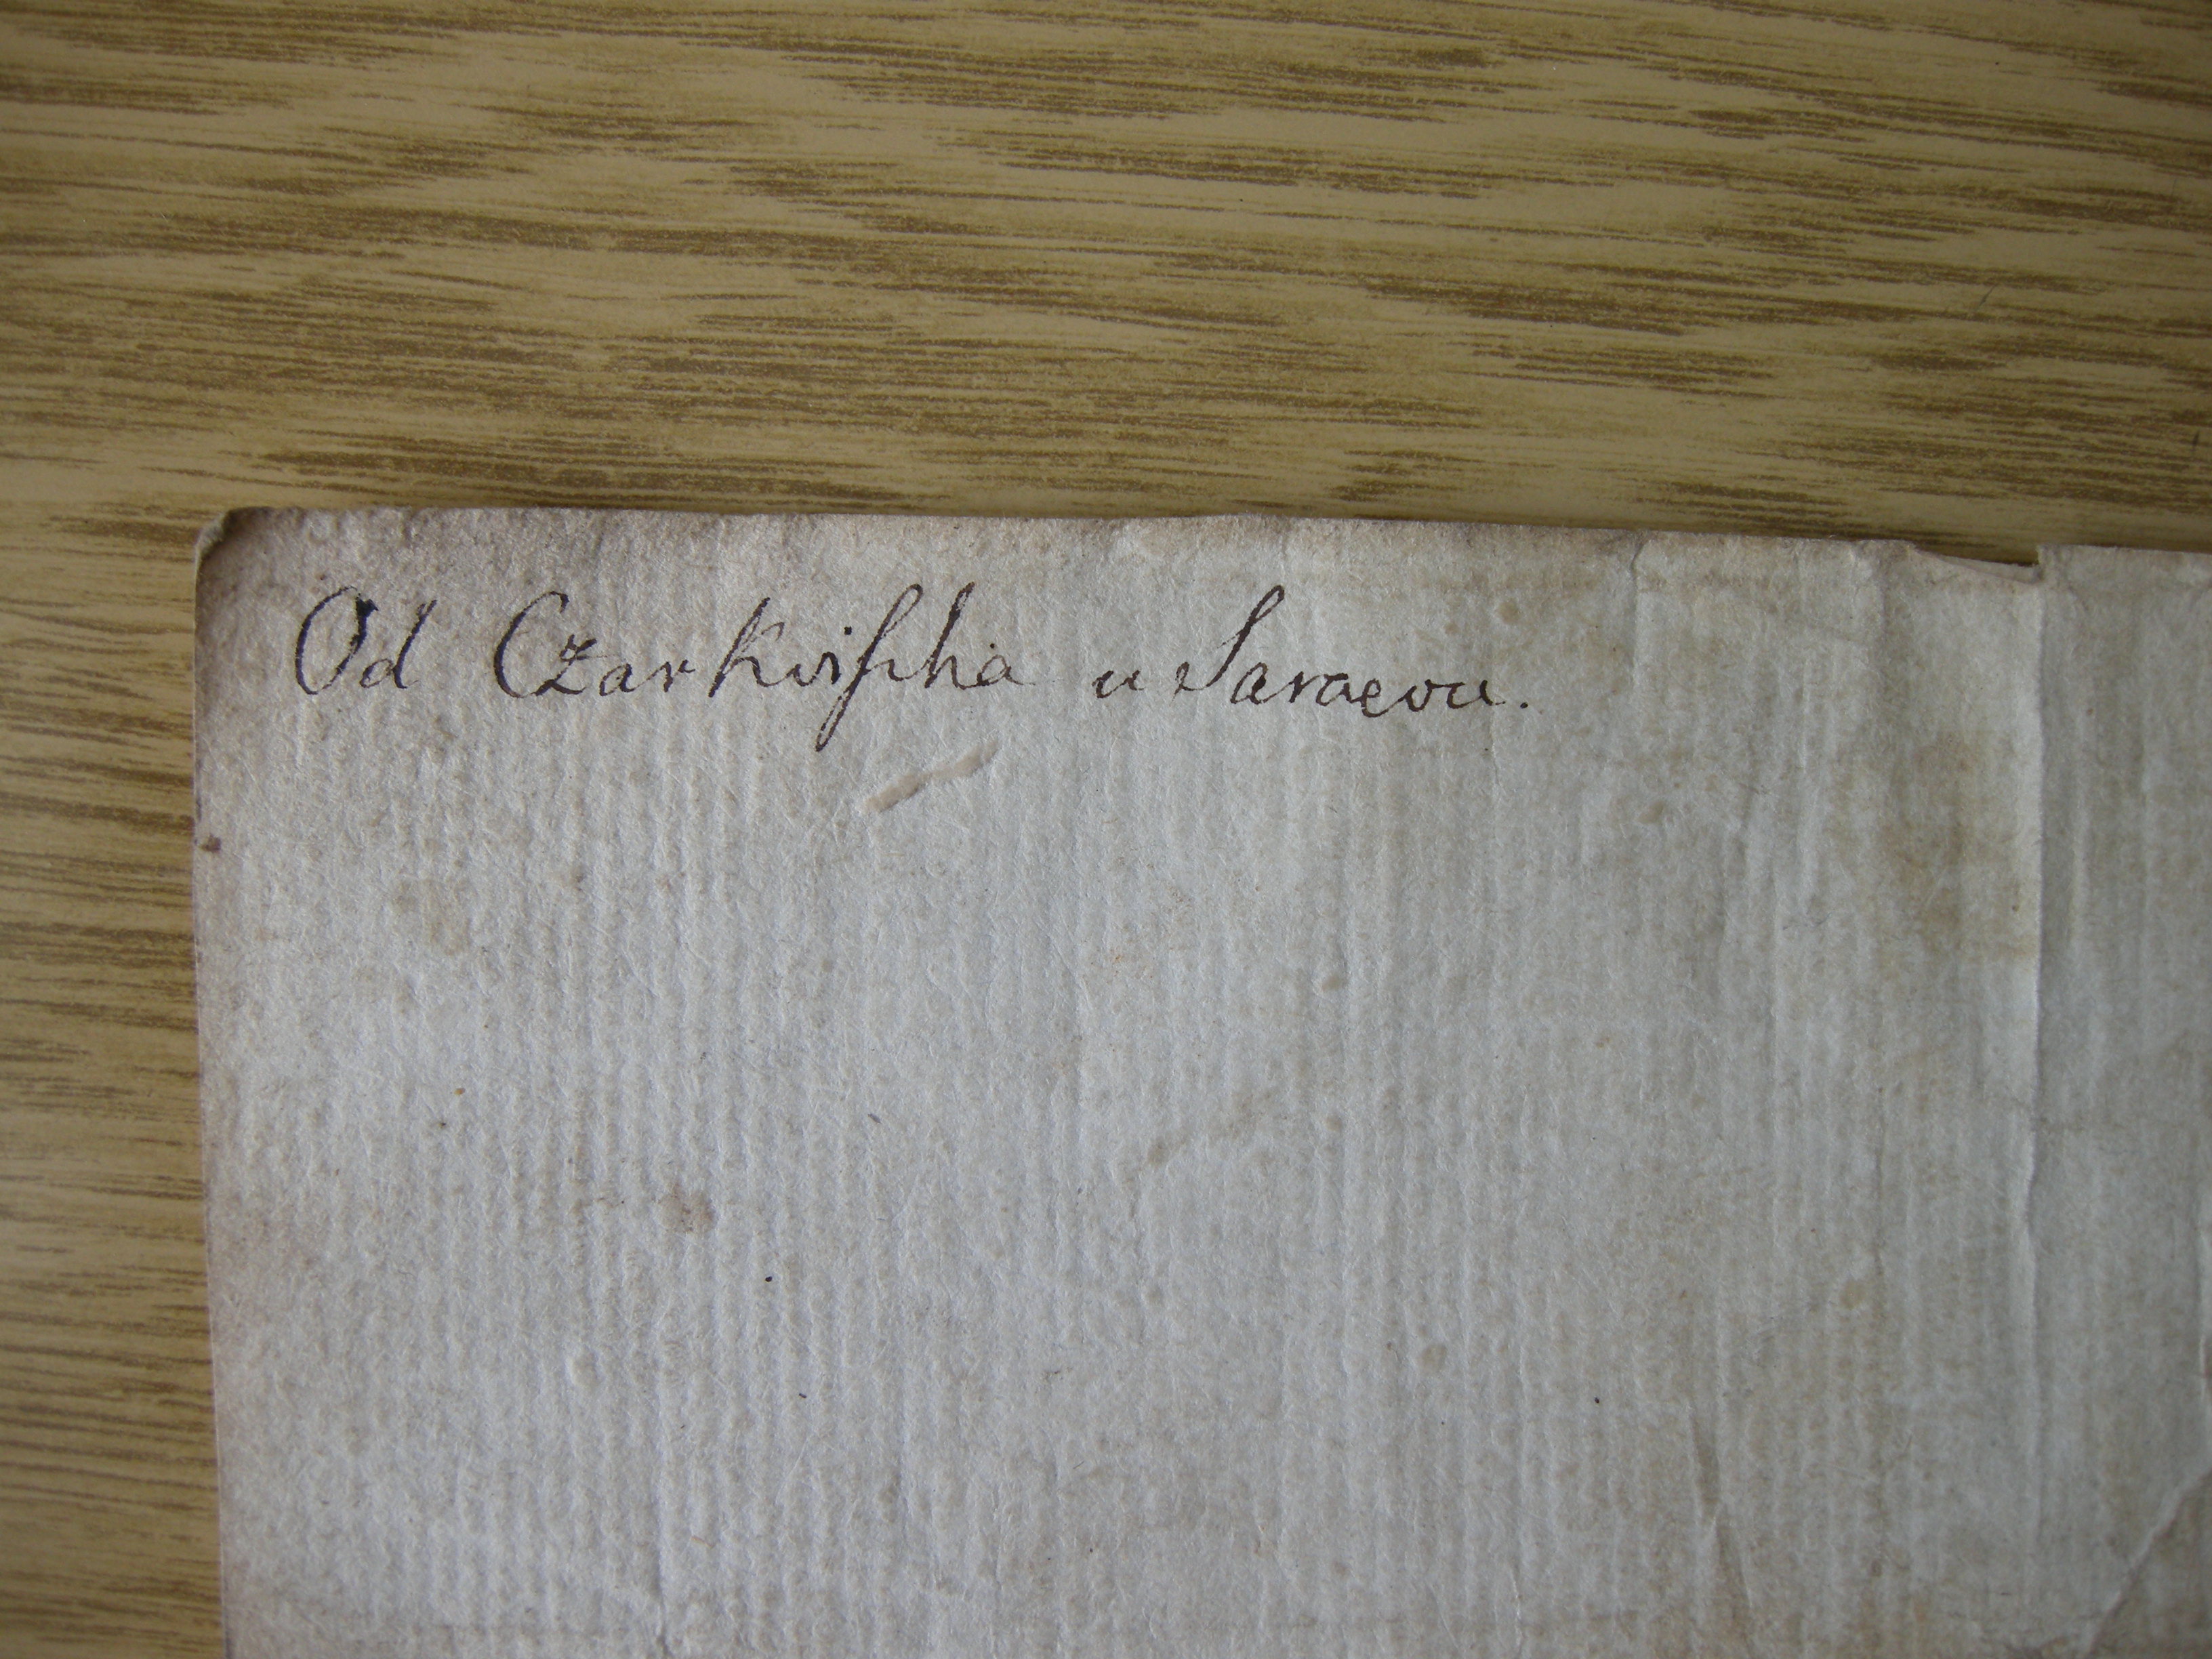 Od Czarkviſcha u Saraevu.